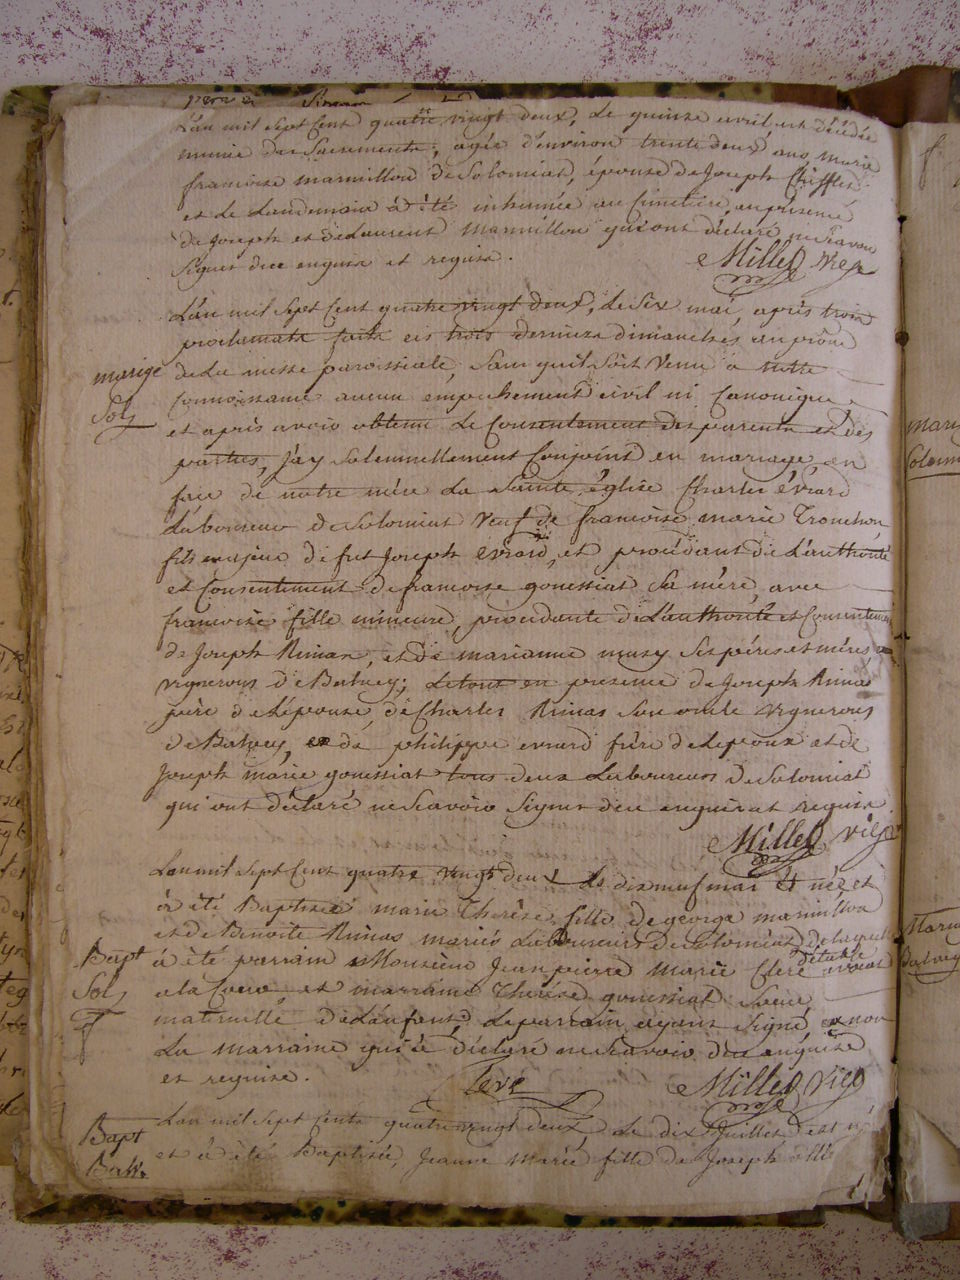 L'an mil sept Cent quatre vingt deux, Le quinze avril, est décédée
munie des Sacrements, agée d'environ trente deux ans, marie
francoise marmillon de Solomiat, épouse de Joseph Chifflet
et le Landemain à été inhumée au Cimetière, en présence
de Joseph et de Laurent Marmillon qui ont déclaré ne Scavoir
Signer dece enquis et requis.
Millet vic
L'an mil Sept Cent quatre vingt deux, Le Six mai, après trois
proclamats faits les trois derniers dimanches au prône
marige
Sol
de La messe paroissiale, Sans quil Soit Venu à notre
Connoissance aucun empechement civil ni Canonique
et après avoir obtenu Le Consentement des parents et des
parties, J'ay Solemnellement Conjoint en mariage, en
face de notre mère La Sainte église Charles évrard
Laboureur de Solomiat Veuf de francoise marie Tronchon,
fils majeur de fut Joseph évrard, et procédant de L'authorité
et Consentement de francoise gouessiat Sa mère, avec
francoise fille mineure, procédante de L'authorité et Consentement
de Joseph Rimas, et de marianne Ses pères et mères
vignerons de Balvey; Le tout en presence de Joseph Rimas
père de L'épouse, de Charles Rimas Son oncle vignerons
de Balvey, et de philippe evrard frère de L'epoux et de
Joseph marie gouessiat tous deux Laboureurs de Solomiat
qui ont déclaré ne Scavoir Signer dece enquis et requis
Millet vic
L'an mil Sept Cent quatre vingt deux Le dix neuf mai Est née et
à été Baptisée marie Therèse fille de george marmillon
et de Benoite Rimas mariés Laboureurs de Solomiat, de laquelle
Bapt
Sol
à été parrain Monsieur Jean pierre Marie Clerc avocat
a la Cour et marraine Therèse gouessiat
maternelle de L'enfant, Le parrain ayant Signé, et non
La marraine qui à déclaré ne Scavoir dece enquise
et requise.
Millet vic
Bapt
Balv.
L'an mil Sept Cent quatre vingt deux, Le dix Juillet est né
et à été Baptisée, Jeanne Marie fille de Joseph